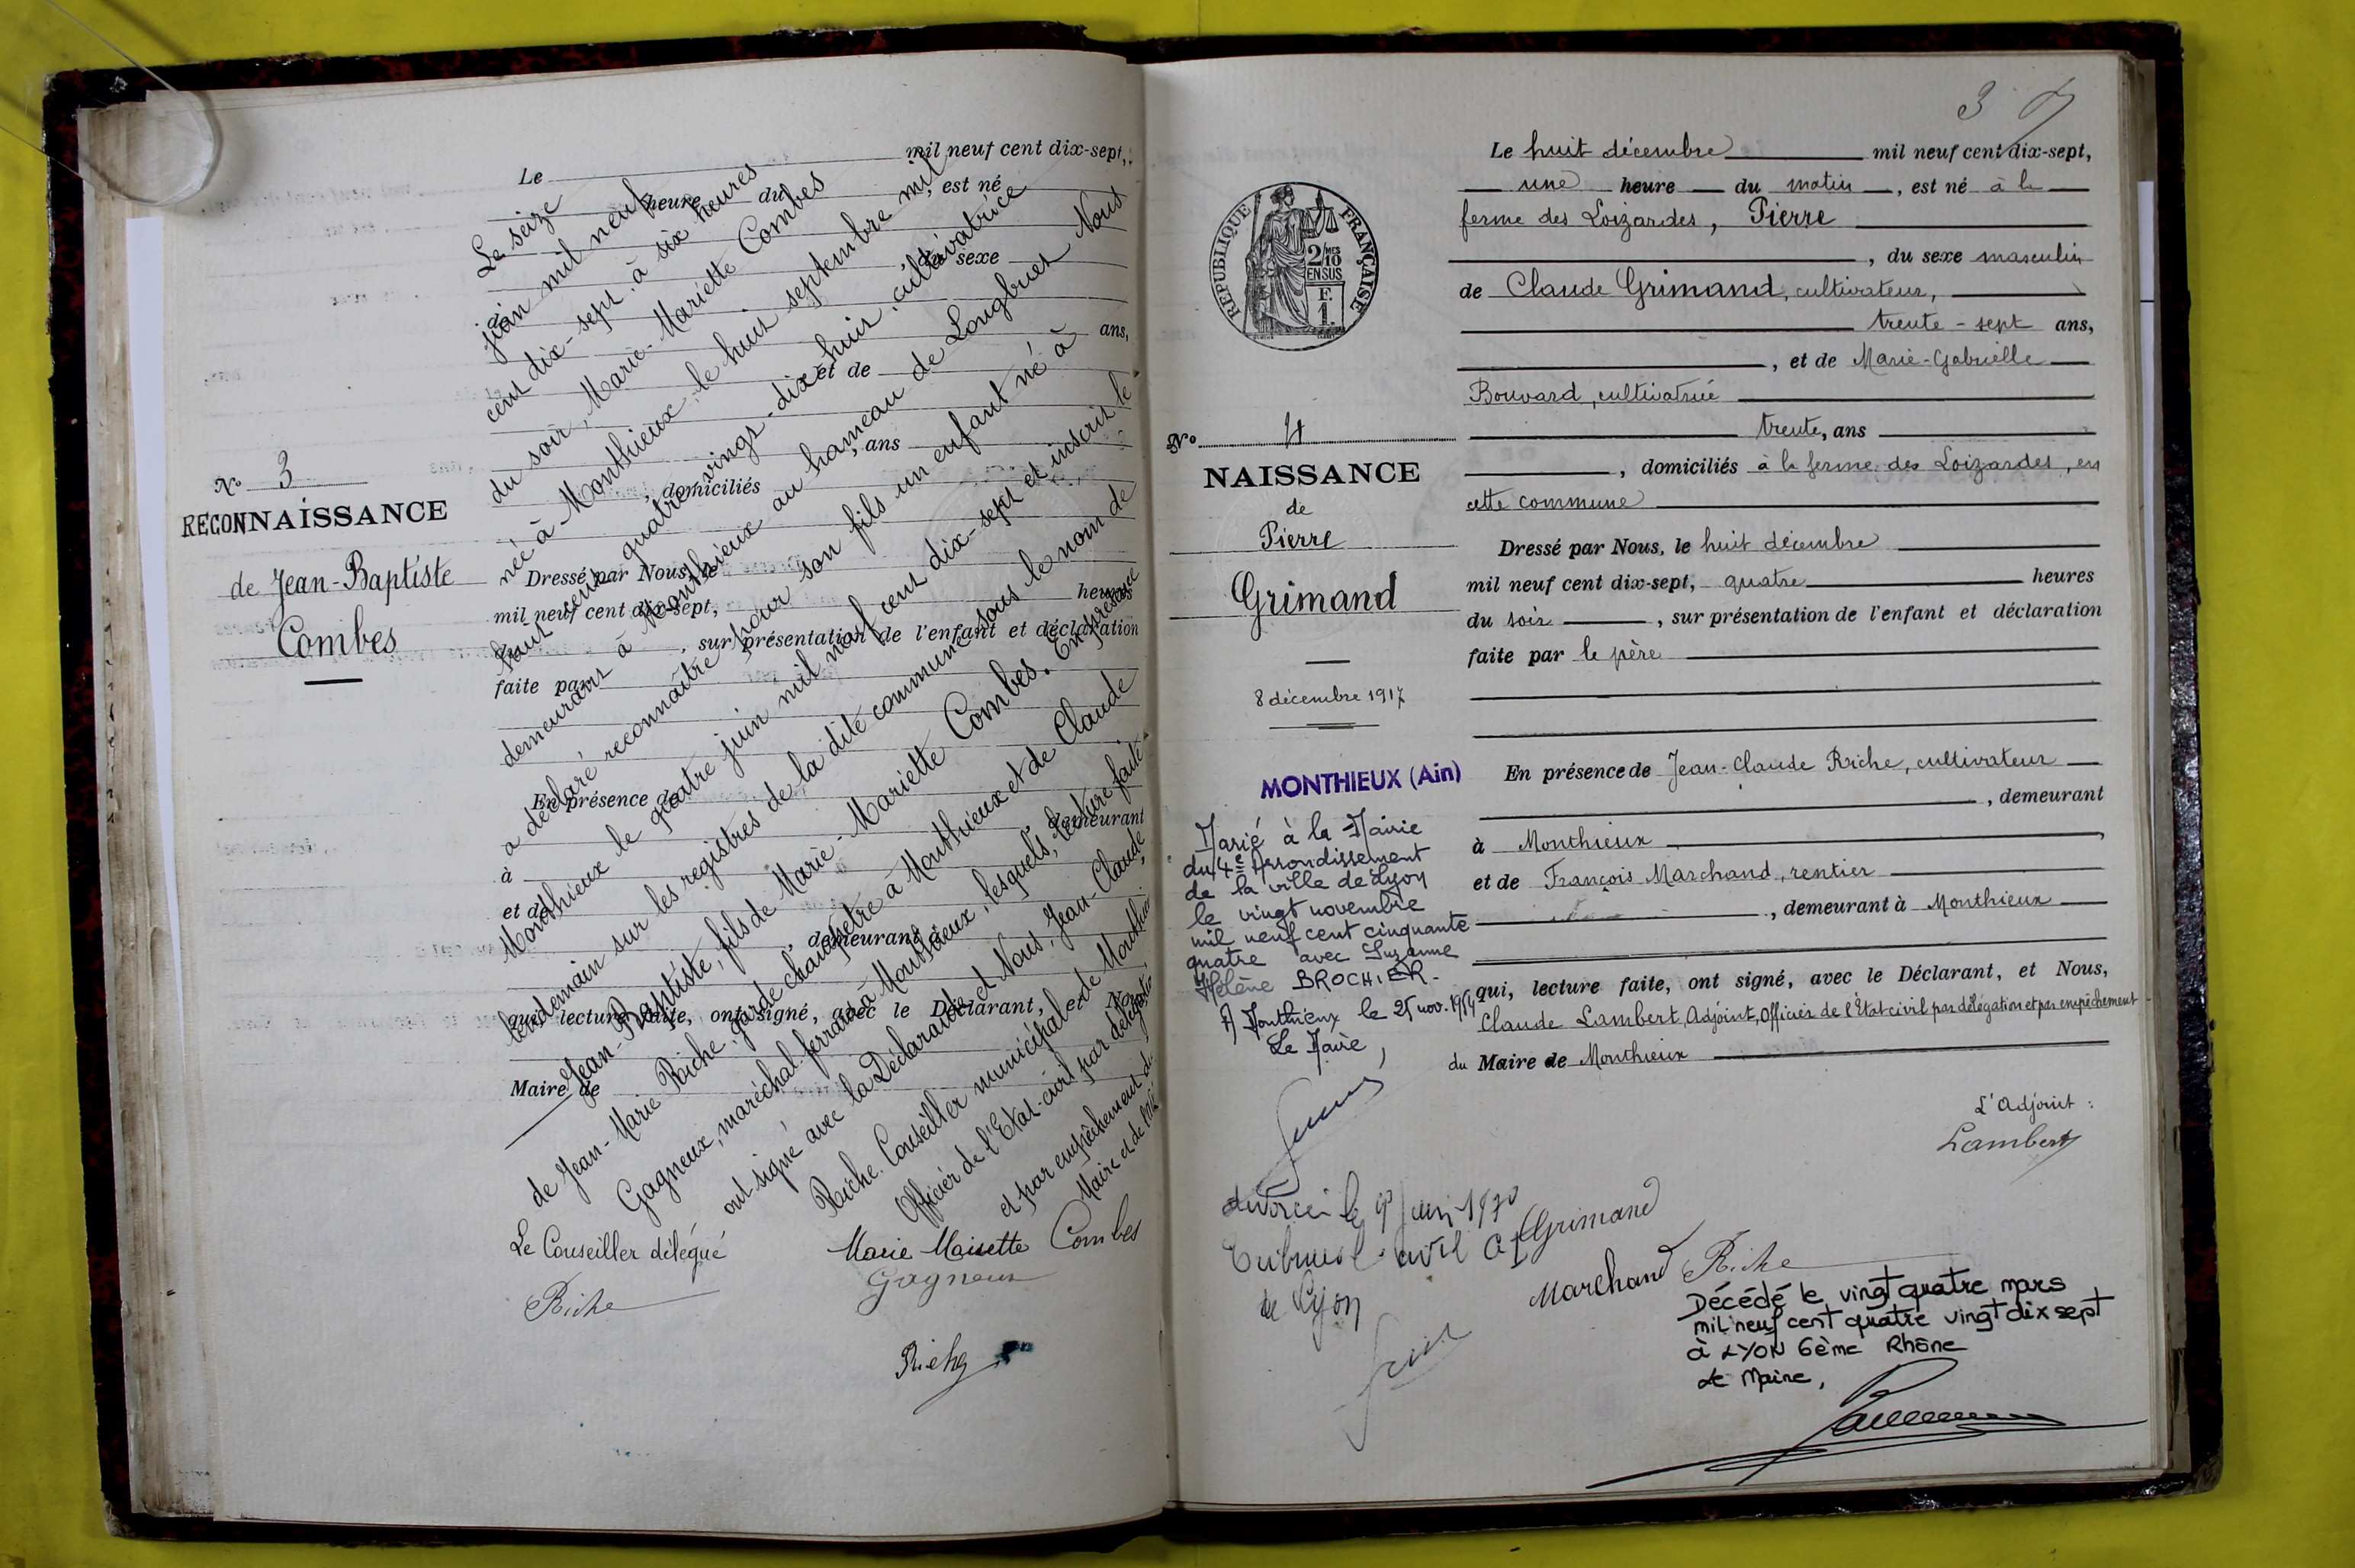 Le mil neuf cent dix-sept,
heure du , est né
, du sexe
de
ans,
et de
, ans
, domiciliés
Dressé par Nous, le
mil neuf cent dix-sept, heures
du , sur présentation de l'enfant et déclaration
faite par
En présence de
, demeurant
à
et de
, demeurant à
qui, lecture faite, ont signé, avec le Déclarant, et Nous,
Maire de
No 3
RECONNAISSANCE
de Jean-Baptiste
Combes
Le seize
juin mil neuf
cent dix-sept, à six heures
du soir, Marie-Mariette Combes
née à Monthieux, le huit septembre mil
huit cent quatre vingt-dix huit, cultivatrice
demeurant à Monthieux au hameau de Longbuet Nous
a déclaré reconnaître pour son fils un enfant né à
Monthieux le quatre juin mil neuf cent dix-sept et inscrit le
lendemain sur les registres de la dite commune sous le nom de
Jean-Baptiste, fils de Marie-Mariette Combes. En présence
de Jean-Marie Riche, garde champêtre à Monthieux et de Claude
Gagneux, maréchal ferrant à Monthieux, lesquels, lecture faite
ont signé avec la Déclarante et Nous, Jean-Claude
Riche. Conseiller municipal de Monthieux
Officier de l'Etat-civil par délégation
et par empêchement du
Maire et de
Le Conseiller délégué
Riche
Marie Mariette Combes
Gagneux
Riche
3
REPUBLIQUE FRANÇAISE
2/10 MES
EN SUS
F.
1.
No 4
NAISSANCE
de
Pierre
Grimand
8 décembre 1917
MONTHIEUX (Ain)
Marié à la Mairie
du 4e Arrondissement
de la ville de Lyon
le vingt novembre
mil neuf cent cinquante
quatre avec Suzanne
Hélène BROCHIER.
A Monthieux le 25 nov. 1954
Le Maire,
divorcé le
Tribunal civil
de Lyon
Le huit décembre mil neuf cent dix-sept,
une heure du matin, est né à la
ferme des Loizardes, Pierre
, du sexe masculin
de Claude Grimand, cultivateur,
trente-sept ans,
, et de Marie-Gabrielle
Bouvard, cultivatrice
trente, ans
, domiciliés à la ferme des Loizardes, en
cette commune
Dressé par Nous, le huit décembre
mil neuf cent dix-sept, quatre heures
du soir , sur présentation de l'enfant et déclaration
faite par le père
En présence de Jean-Claude Riche, cultivateur
, demeurant
à Monthieux ,
et de François Marchand, rentier
, demeurant à Monthieux
qui, lecture faite, ont signé, avec le Déclarant, et Nous,
Claude Lambert, Adjoint, Officier de l'Etat civil par délégation et par empêchement
du Maire de Monthieux
L'Adjoint :
Lambert
Grimand
Marchand Riche
Décédé le vingt quatre mars
mil neuf cent quatre vingt dix sept
à LYON 6ème Rhône
Le Maire,